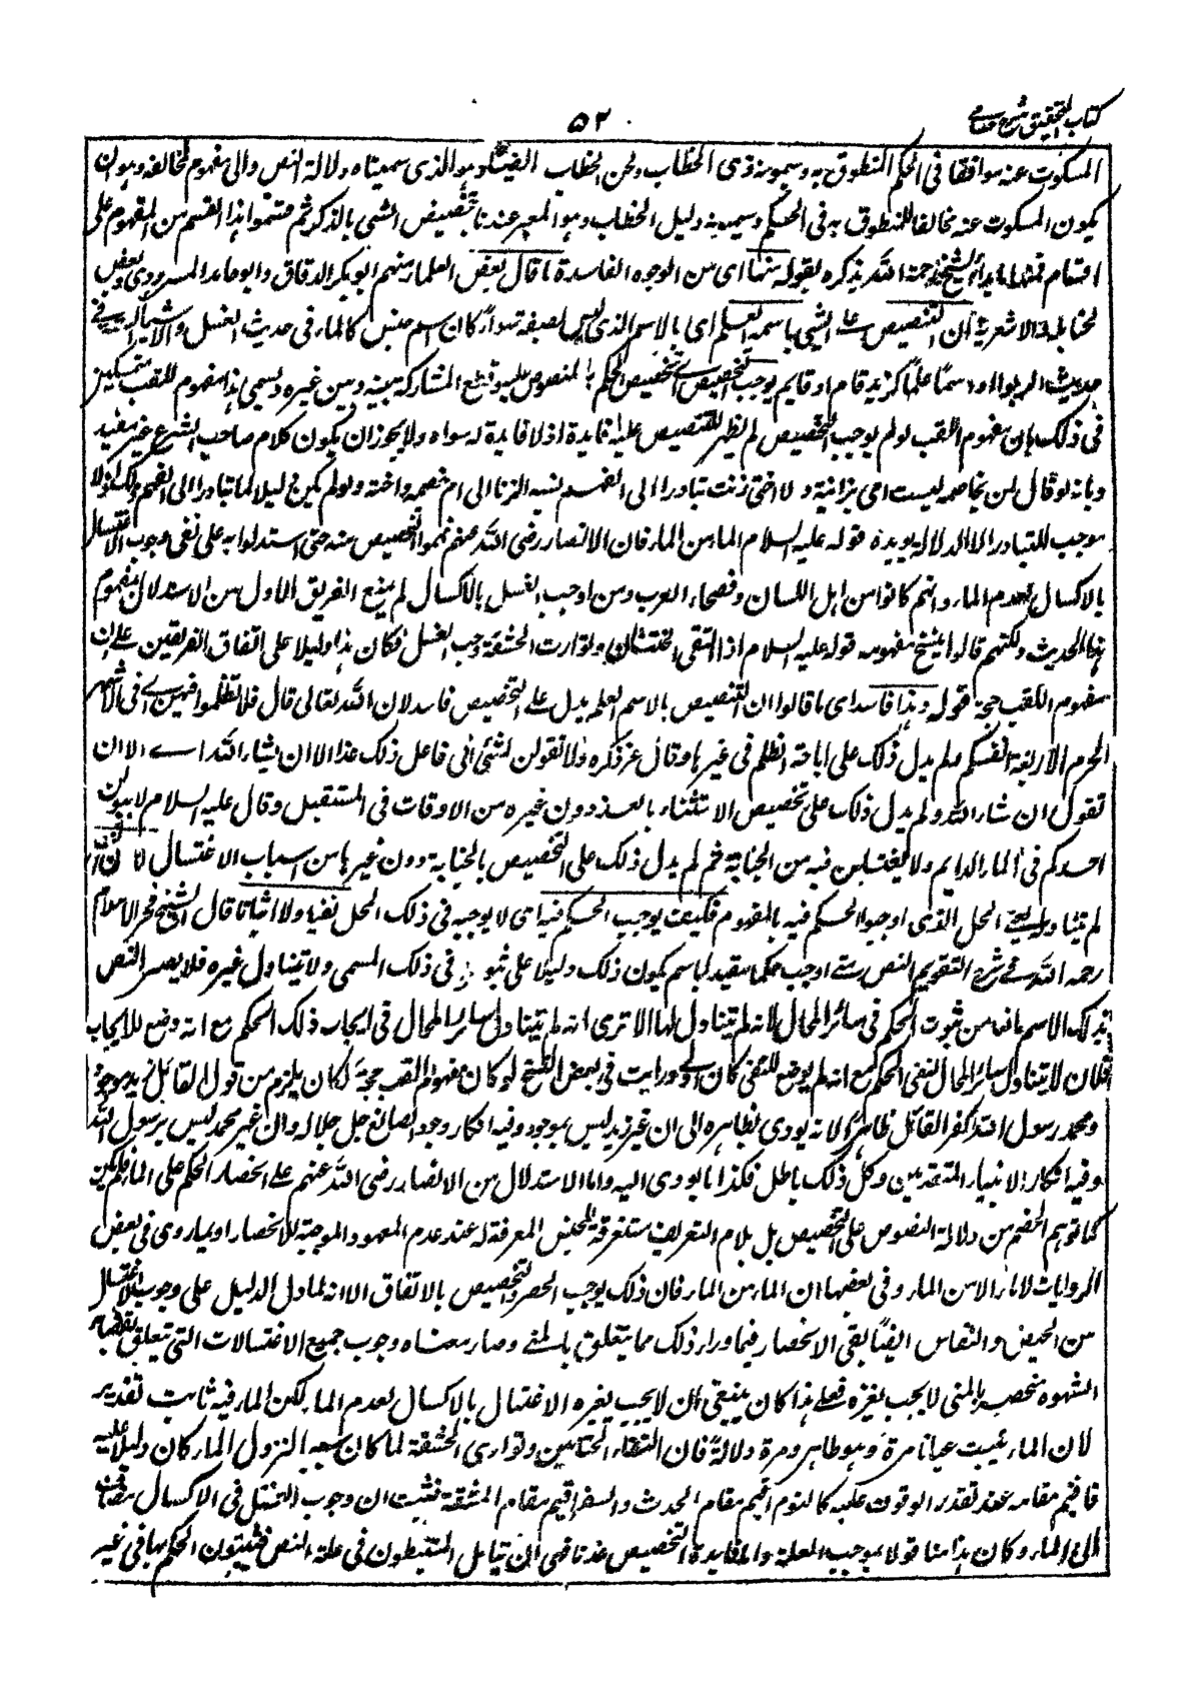 كتاب التحقيق شرح حسامى
٥٢
المسكوت عنه موافقا فى الحكم المنطوق به ويسمونه فحوى الخطاب ولحن الخطاب ايضا وهو الذى سميناه دلالة النص والى مفهوم مخالفة وهو ان
يكون المسكوت عنه مخالفا للمنطوق به فى الحكم ويسمونه دليل الخطاب وهو المعبر عندنا بتخصيص الشئ بالذكر ثم قسموا هذا القسم من المفهوم على
اقسام فمنها ما بدأ الشيخ رحمه الله بذكره بقوله منها اى من الوجوه الفاسدة ما قال بعض العلماء منهم ابو بكر الدقاق وابو حامد المروروذى وبعض
الحنابلة والاشعرية ان التنصيص على الشئ باسمه العلم اى بالاسم الذى ليس لصفة سواء كان اسم جنس كالماء فى حديث الغسل والاشياء الستة فى
حديث الربوا او اسما علما كزيد قام او قايم يوجب التخصيص اى تخصيص الحكم بالمنصوص عليه وقطع المشاركة بينه وبين غيره ويسمى هذا مفهوم اللقب متمسكين
فى ذلك بان مفهوم اللقب لو لم يوجب التخصيص لم يظهر للتنصيص عليه فايدة اذ لا فايدة له سواه ولا يجوز ان يكون كلام صاحب الشرع غير مفيد
وبانه لو قال لمن يخاصمه ليست امى بزانية ولا اختى زنت تبادر الى الفهم نسبة الزنا الى ام خصمه واخته ولو لم يكن دليلا لما تبادر الى الفهم ذلك اذ لا
موجب للتبادر الا الدلالة يويده قوله عليه السلام الماء من الماء فان الانصار رضى الله عنهم فهموا التخصيص منه حتى استدلوا به على نفى وجوب الاغتسال
بالاكسال لعدم الماء وانهم كانوا من اهل اللسان وفصحاء العرب ومن اوجب الغسل بالاكسال لم يمنع الفريق الاول من الاستدلال بمفهوم
هذا الحديث ولكنهم قالوا بنسخ مفهومه قوله عليه السلام اذا التقى الختانان وتوارت الحشفة وجب الغسل فكان هذا دليلا على اتفاق الفريقين على ان
مفهوم اللقب حجة قوله وهذا فاسد اى ما قالوا ان التنصيص بالاسم العلم يدل على التخصيص فاسد لان الله تعالى قال فلا تظلموا فيهن اى فى الاشهر
الحرم الاربعة انفسكم ولم يدل ذلك على اباحة الظلم فى غيرها وقال عز ذكره ولا تقولن لشئ انى فاعل ذلك غدا الا ان يشاء الله اى الا ان
تقول ان شاء الله ولم يدل ذلك على تخصيص الاستثناء بالغد دون غيره من الاوقات فى المستقبل وقال عليه السلام لا يبولن
احدكم فى الماء الدايم ولا يغتسلن فيه من الجنابة ثم لم يدل ذلك على التخصيص بالجنابة دون غيرها من اسباب الاغتسال لان النص
لم يتناوله اى المحل الذى اوجبوا الحكم فيه بالمفهوم فكيف يوجب الحكم فيه اى لا يوجبه فى ذلك المحل نفيا ولا اثباتا قال الشيخ فخر الاسلام
رحمه الله فى شرح التقويم النص متى اوجب حكما مقيدا باسم يكون ذلك دليلا على ثبوته فى ذلك المسمى ولا يتناول غيره فلا يصير النص
بذلك الاسم مانعا من ثبوت الحكم فى سائر المحال لانه لم يتناولها الا ترى انه لم يتناول سائر المحال فى ايجاب ذلك الحكم مع انه وضع للايجاب
فلان لا يتناول سائر المحال لنفى الحكم مع انه لم يوضع للنفى كان اولى ورايت فى بعض النسخ لو كان مفهوم اللقب حجة لكان يلزم من قول القائل زيد موجود
ومحمد رسول الله كفر القائل ظاهرا لانه يودى بظاهره الى ان غير زيد ليس بموجود وفيه انكار وجود الصانع جل جلاله وان غير محمد ليس برسول الله
وفيه انكار الانبياء المتقدمين وكل ذلك باطل فكذا ما يودى اليه واما الاستدلال من الانصار رضى الله عنهم على انحصار الحكم على الماء فلم يكن
كما توهم الخصم من دلالة النصوص على التخصيص بل بلام التعريف مستغرقة للجنس المعرفة له عند عدم المعهود الموجبة للانحصار او بما روى فى بعض
الروايات لا ماء الا من الماء وفى بعضها ان الماء من الماء فان ذلك يوجب الحصر والتخصيص بالاتفاق الا انه لما دل الدليل على وجوب الاغتسال
من الحيض والنفاس ايضا بقى الانحصار فيما وراء ذلك مما يتعلق بالمنى وصار معناه وجوب جميع الاغتسالات التى تتعلق بقضاء
الشهوة منحصر بالمنى لا يجب بغيره فعلى هذا كان ينبغى ان لا يجب بغيره الاغتسال بالاكسال لعدم الماء لكن الماء فيه ثابت تقدير
لان الماء يثبت عيانا مرة وهو ظاهر ومرة دلالة فان التقاء الختانين وتوارى الحشفة لما كان سببا لنزول الماء كان دليلا عليه
فاقيم مقامه عند تعذر الوقوف عليه كالنوم اقيم مقام الحدث والسفر اقيم مقام المشقة فثبت ان وجوب الغسل فى الاكسال مضاف
الى الماء وكان هذا منا قولا بموجب العلة واما فايدة التخصيص عندنا فهى ان يتامل المستنبطون فى علة النص فيثبتون الحكم بها فى غير